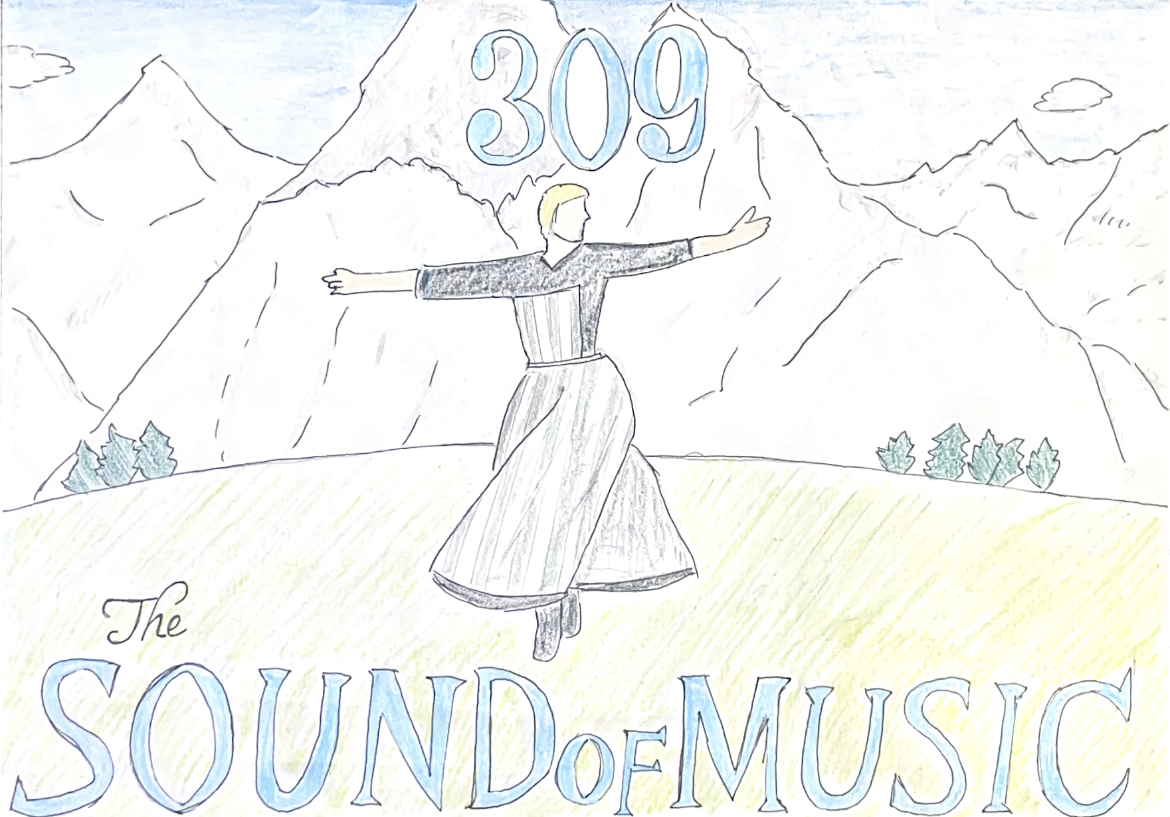 309
The
SOUND OF MUSIC